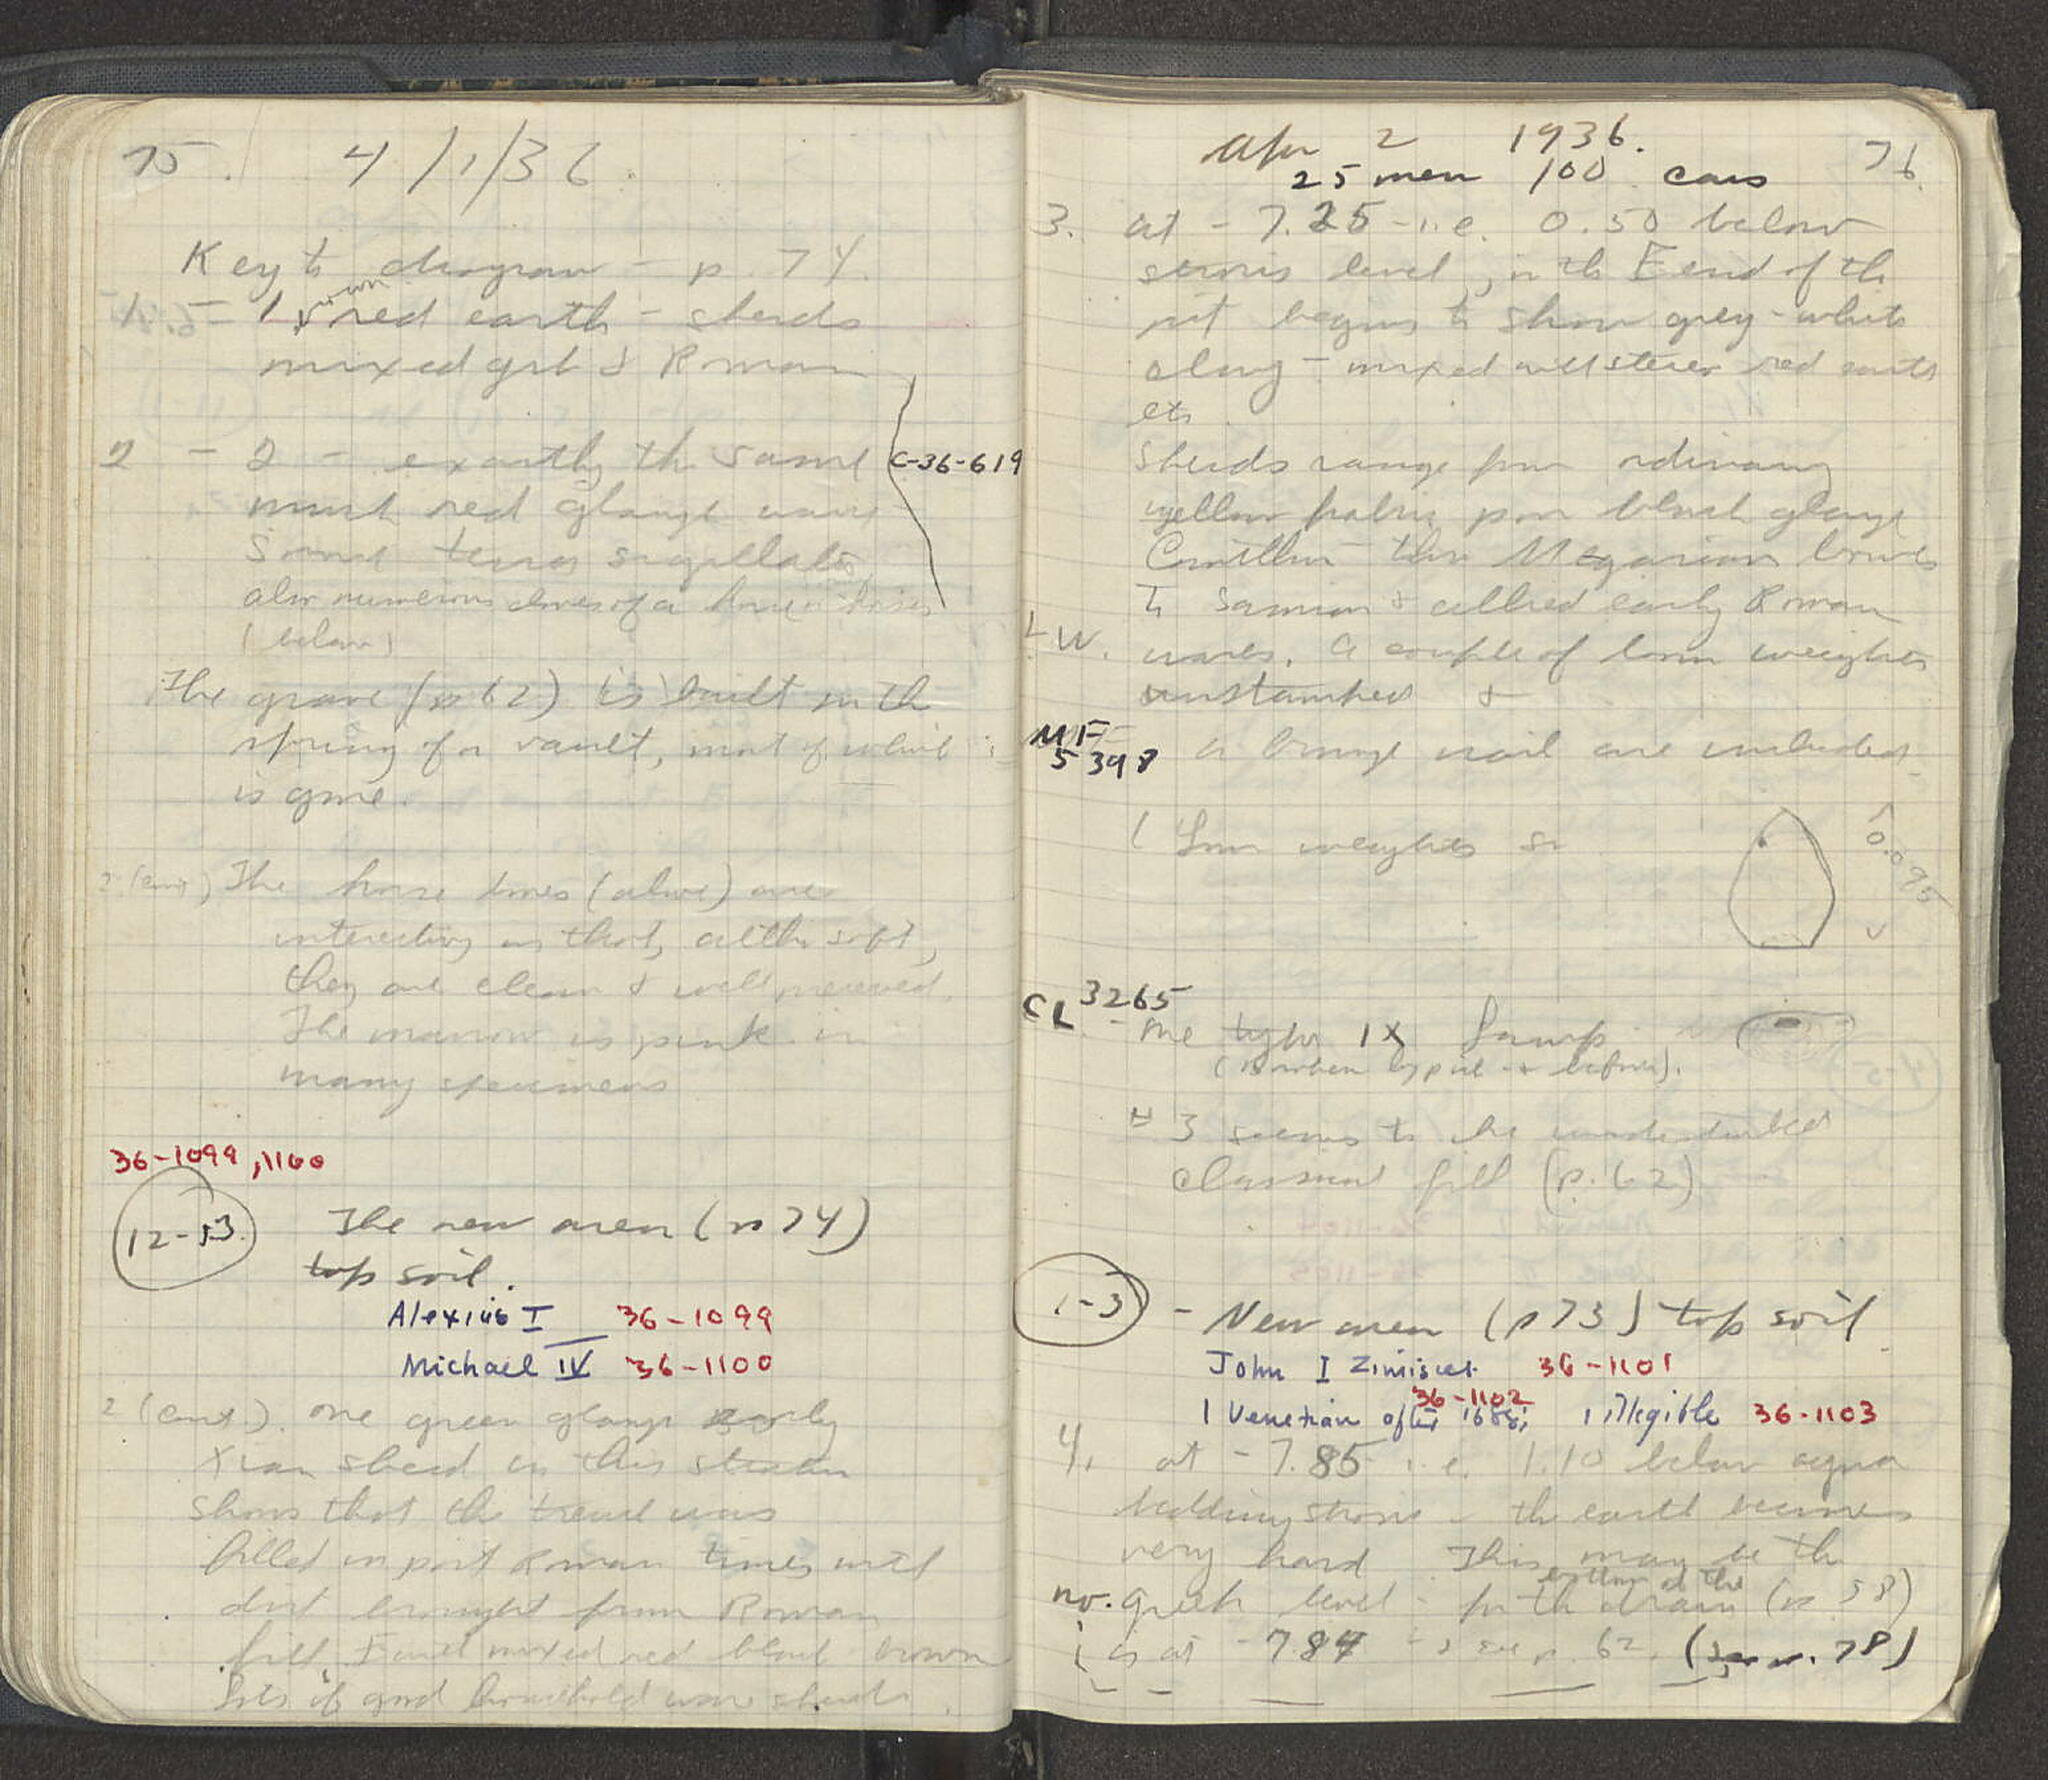 75. 4/1/36
Key to diagram - p. 74.
1. - 1 brown red earth - sherds
mixed grk & Roman
2 - 2 - exactly the same
C-36-619
much red glaze ware
Some terra sigillata,
also numerous bones of a horse
(below)
The grave (p 62) is built with
spring of a vault, most of which
is gone.
2 (cont) The horse bones (above) are
interesting in that, altho soft,
they are clean & well preserved.
The marrow is pink in
many specimens
36-1099, 1100
12-13. The new area (p 74)
top soil.
Alexius I 36-1099
Michael IV 36-1100
2 (cont.). One green glaze early
Xian sherd in this
shows that the was
filled in post Roman times with
dirt brought from Roman
fill. Earth mixed red black brown
Lots of good household ware sherds.
Apr 2 1936. 76.
25 men 100 cars
3. at - 7.25 - i.e. 0.50 below
level, in the E end of the
pit begins to show grey-white
clay - mixed with red earth
etc
Sherds range from ordinary
yellow fabric, from black glaze
Corinthian thru Megarian bowls
to Samian & allied early Roman
L.W. wares. A couple of loom weights
unstamped &
MF 5398 a bronze nail are included.
( Loom weights so
0.095
CL 3265 - one type IX Lamp
(Broneer type & before).
# 3 seems to be undisturbed
classical fill (p. 62)
1-3 - New area (p 73) top soil
John I Zimisces 36-1101
36-1102
1 Venetian after 1688; 1 illegible 36-1103
4. at - 7.85 i.e. 1.10 below
bedding - the earth becomes
very hard This may be the
bottom of the
no. greek level - for the drain (p 58)
is at - 7.84 - see p. 62. (see p. 78)